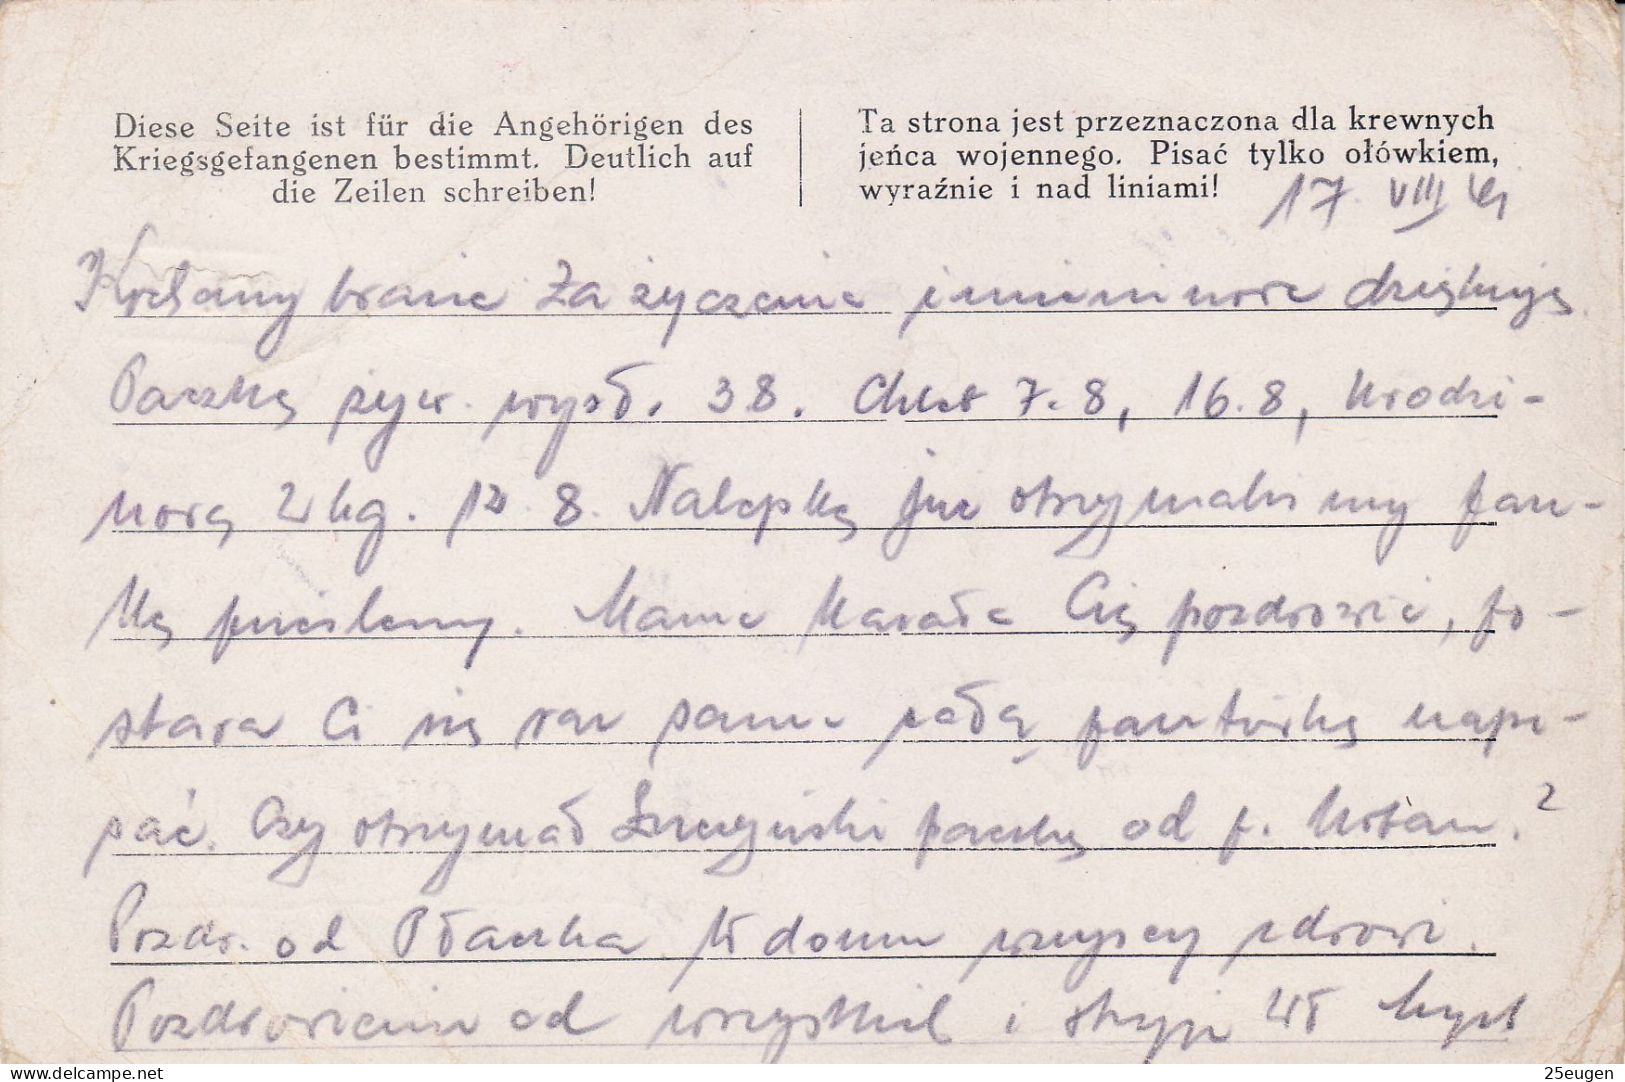 Diese Seite ist für die Angehörigen des
Kriegsgefangenen bestimmt. Deutlich auf
die Zeilen schreiben!
Ta strona jest przeznaczona dla krewnych
jeńca wojennego. Pisać tylko ołówkiem,
wyraźnie i nad liniami!
17. VIII 41
Kochany bracie Za życzenie imieninowe dziękuję.
Paczkę żyw. wysł. 3 8. Chleb 7.8, 16.8, Urodzi-
nową 2 kg. 12. 8. Nalepkę już otrzymaliśmy pacz-
kę poślemy. Mama kazała Cię pozdrowić, po-
stara Ci się raz sama całą kartkę napi-
sać. Czy otrzymał paczkę od p. ?
Pozdr. od Płaczka. W domu wszyscy zdrowi.
Pozdrowienia od wszystkich i
25eugen
delcampe.net